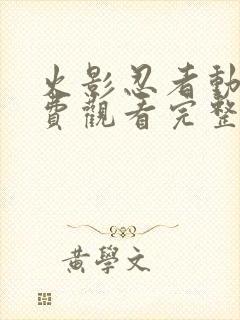 火影忍者動
費觀看完整
黃學文